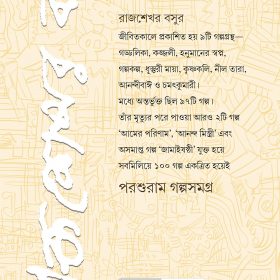 রাজশেখর বসুর
জীবিতকালে প্রকাশিত হয় ৯টি গল্পগ্রন্থ—
গড্ডলিকা, কজ্জলী, হনুমানের স্বপ্ন,
গল্পকল্প, ধুস্তুরী মায়া, কৃষ্ণকলি, নীল তারা,
আনন্দীবাঈ ও চমৎকুমারী।
মধ্যে অন্তর্ভুক্ত ছিল ৯৭টি গল্প।
তাঁর মৃত্যুর পরে পাওয়া আরও ২টি গল্প
'আমের পরিণাম', 'আনন্দ মিস্ত্রী' এবং
অসমাপ্ত গল্প 'জামাইষষ্ঠী' যুক্ত হয়ে
সবমিলিয়ে ১০০ গল্প একত্রিত হয়েই
পরশুরাম গল্পসমগ্র